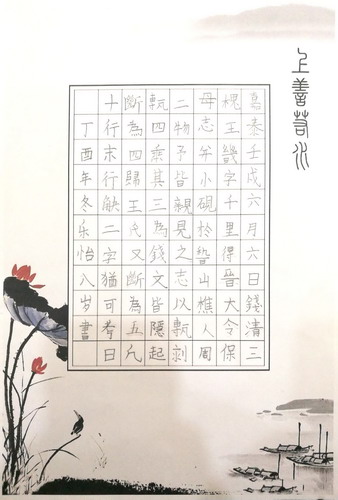 上善若水
嘉泰壬戌六月六日錢清三
槐王畿字千里得晉大令保
母志并小硯於稽山樵人周
二物予皆親見之志以甎刻
甎四垂其三為錢文皆隱起
斷為四歸王氏又斷為五凡
十行末行缺二字猶可考曰
丁酉年冬乐怡八岁書